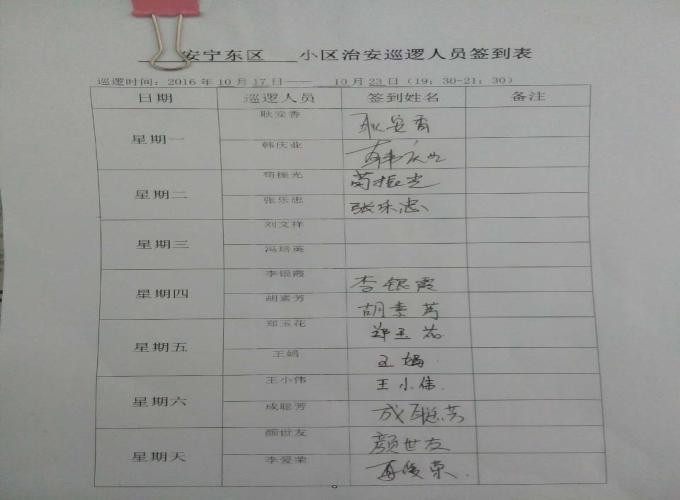 安宁东区 小区治安巡逻人员签到表
巡逻时间：2016 年 10 月 17 日—— 10 月 23 日（19：30-21：30）
日期 巡逻人员 签到姓名 备注
星期一 耿安香 耿安香
韩庆业 韩庆业
星期二 苟振光 苟振光
张乐忠 张乐忠
星期三 刘文祥
冯培英
星期四 李银霞 李银霞
胡素芳 胡素芳
星期五 郑玉花 郑玉花
王嫣 王嫣
星期六 王小伟 王小伟
成聪芳 成聪芳
星期天 颜世友 颜世友
李爱荣